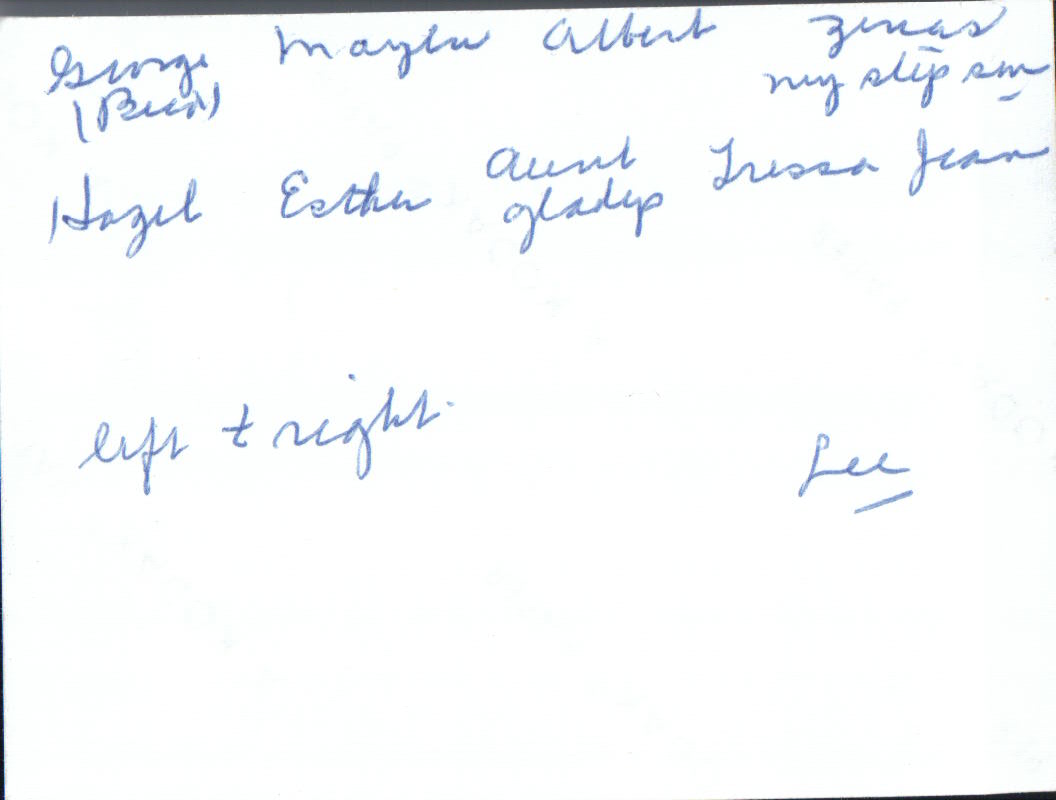 George Albert Zenas
my step son
Hazel Esther Aunt Gladys Tressa Jean
left t right.
Lee